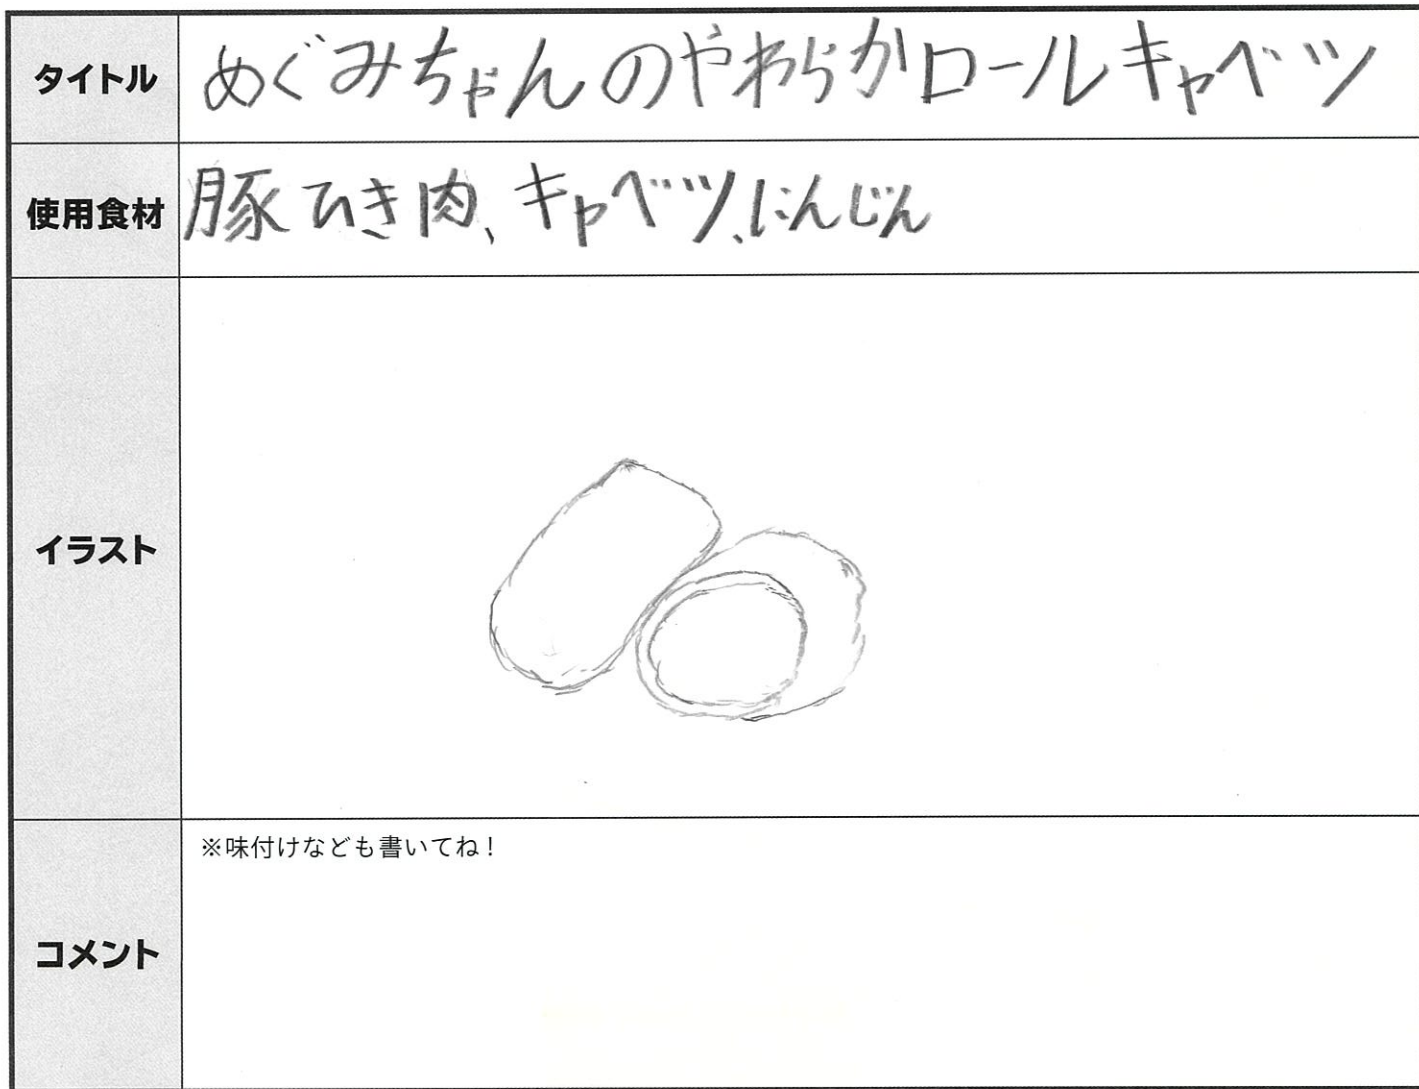 タイトル
めぐみちゃんのやわらかロールキャベツ
使用食材
豚ひき肉、キャベツ、にんじん
イラスト
コメント
※味付けなども書いてね!